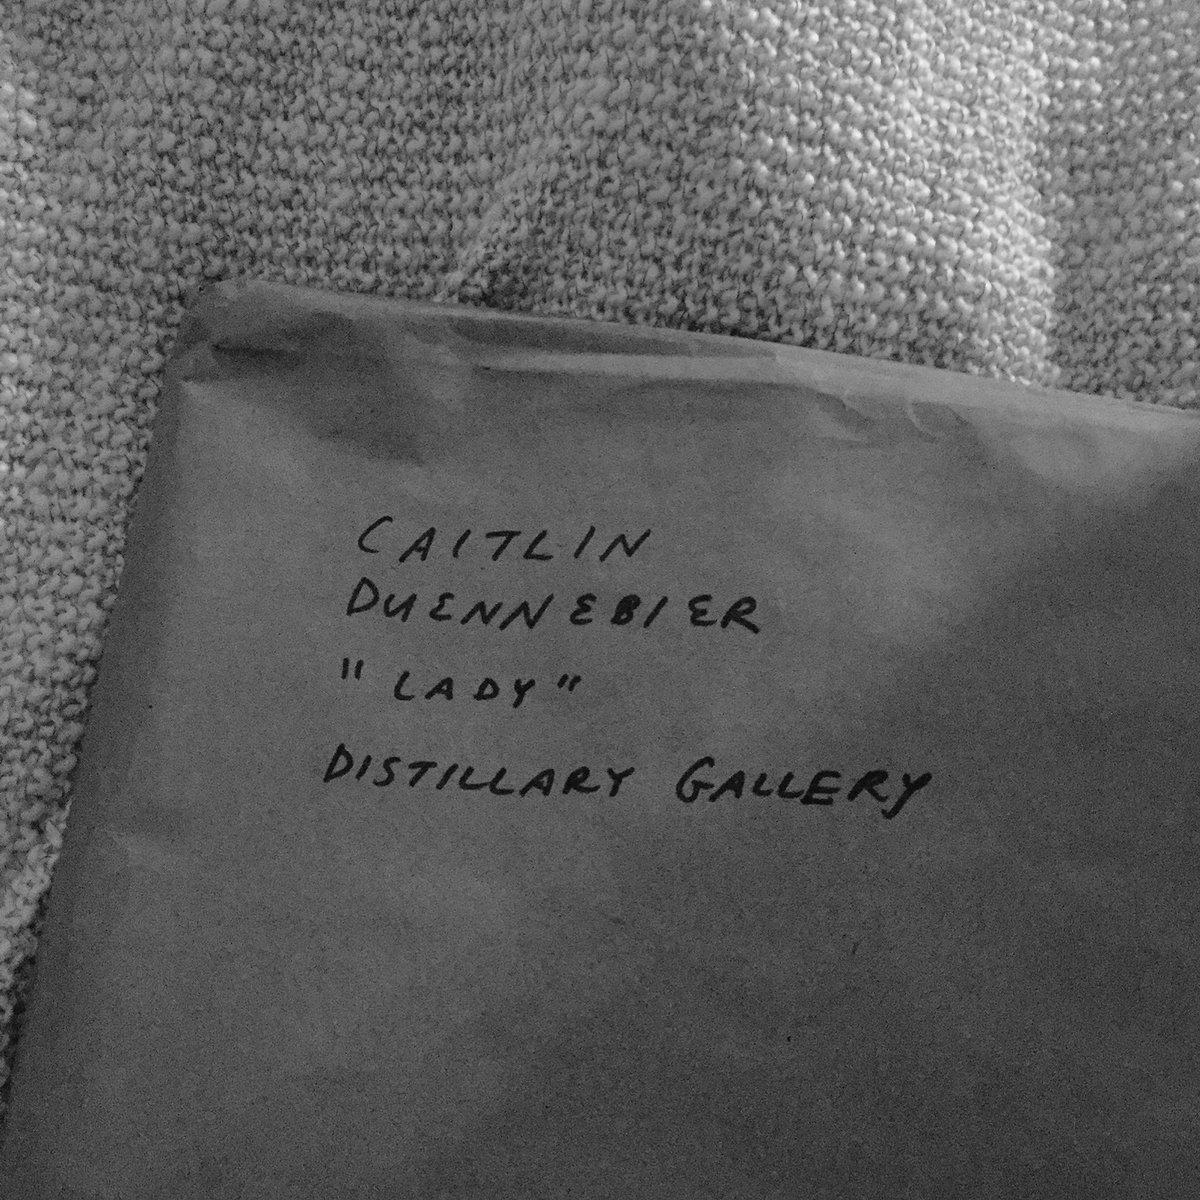 CAITLIN
DUENNEBIER
"LADY"
DISTILLARY GALLERY